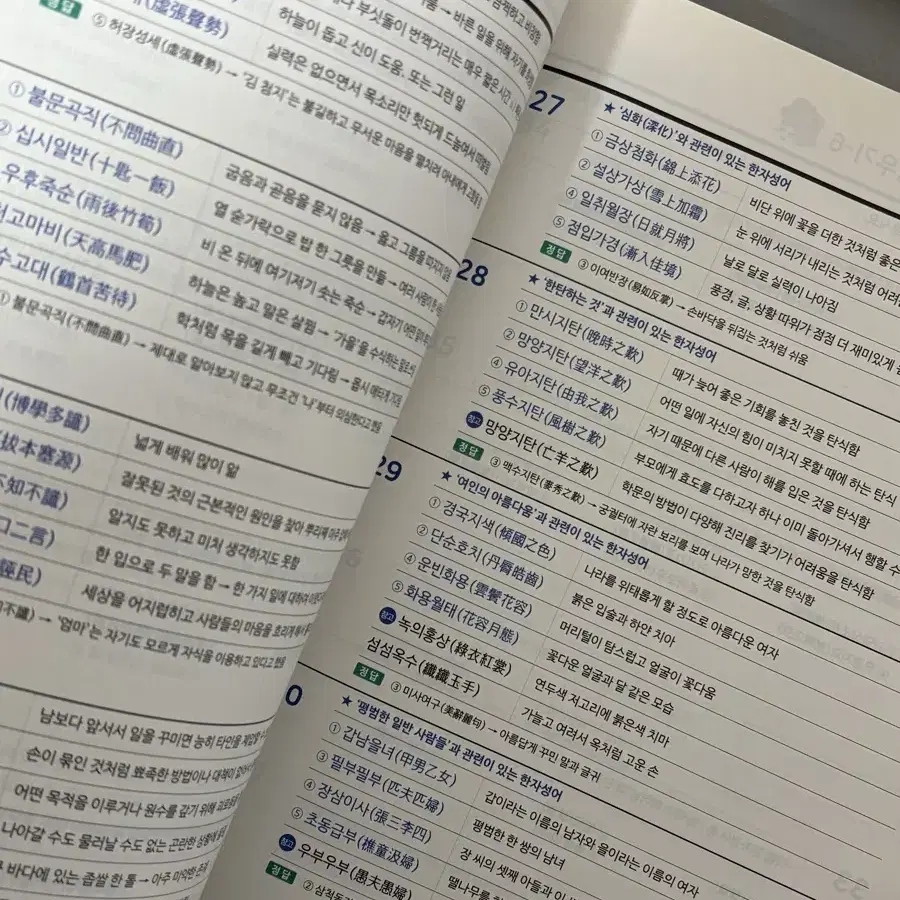 정답
⑤ 허장성세(虛張聲勢) → '김 첨지'는 불길하고 무서운 마음을 떨치려
하늘이 돕고 신이 도움. 또는 그런 일
실력은 없으면서 목소리만 헛되게 드높여서 떠벌림
① 불문곡직(不問曲直)
굽음과 곧음을 묻지 않음 → 옳고 그름을 따지지 않음
② 십시일반(十匙一飯)
열 숟가락으로 밥 한 그릇을 만듦
우후죽순(雨後竹筍)
비 온 뒤에 여기저기 솟는 죽순
고마비(天高馬肥)
하늘은 높고 말은 살찜 → '가을'을 수식하는 말
수고대(鶴首苦待)
학처럼 목을 길게 빼고 기다림 → 몹시 애타게 기다림
① 불문곡직(不問曲直) → 제대로 알아보지 않고 무조건 '나'부터 의심한다고 했음
(博學多識)
넓게 배워 많이 앎
(拔本塞源)
잘못된 것의 근본적인 원인을 찾아
不知不識)
알지도 못하고 미처 생각하지도 못함
口二言)
한 입으로 두 말을 함 → 한 가지 일에 대하여
誣民)
세상을 어지럽히고 사람들의 마음을 흐리게
不識) → '엄마'는 자기도 모르게 자식을 이용하고 있다고 했음
남보다 앞서서 일을 꾸미면 능히 타인을 제압할 수
손이 묶인 것처럼 뾰족한 방법이나 대책이 없어
어떤 목적을 이루거나 원수를 갚기 위해
나아갈 수도 물러날 수도 없는 곤란한 상황에
바다에 있는 좁쌀 한 톨 → 아주 미약한 존재
27
★ '심화(深化)'와 관련이 있는 한자성어
① 금상첨화(錦上添花)
비단 위에 꽃을 더한 것처럼 좋은
② 설상가상(雪上加霜)
눈 위에 서리가 내리는 것처럼 어려
④ 일취월장(日就月將)
날로 달로 실력이 나아짐
⑤ 점입가경(漸入佳境)
풍경, 글, 상황 따위가 점점 더 재미있게
정답
③ 이여반장(易如反掌) → 손바닥을 뒤집는 것처럼 쉬움
28
★ '한탄하는 것'과 관련이 있는 한자성어
① 만시지탄(晩時之歎)
때가 늦어 좋은 기회를 놓친 것을 탄식함
② 망양지탄(望洋之歎)
어떤 일에 자신의 힘이 미치지 못할 때에 하는 탄식
④ 유아지탄(由我之歎)
자기 때문에 다른 사람이 해를 입은 것을 탄식함
⑤ 풍수지탄(風樹之歎)
부모에게 효도를 다하고자 하나 이미 돌아가셔서 행할 수
참고 망양지탄(亡羊之歎)
학문의 방법이 다양해 진리를 찾기가 어려움을 탄식함
정답
③ 맥수지탄(麥秀之歎) → 궁궐터에 자란 보리를 보며 나라가 망한 것을 탄식함
29
★ '여인의 아름다움'과 관련이 있는 한자성어
① 경국지색(傾國之色)
나라를 위태롭게 할 정도로 아름다운 여자
② 단순호치(丹脣皓齒)
붉은 입술과 하얀 치아
④ 운빈화용(雲鬢花容)
머리털이 탐스럽고 얼굴이 꽃다움
⑤ 화용월태(花容月態)
꽃다운 얼굴과 달 같은 모습
참고 녹의홍상(綠衣紅裳)
연두색 저고리에 붉은색 치마
섬섬옥수(纖纖玉手)
가늘고 여려서 옥처럼 고운 손
정답
③ 미사여구(美辭麗句) → 아름답게 꾸민 말과 글귀
0
★ '평범한 일반 사람들'과 관련이 있는 한자성어
① 갑남을녀(甲男乙女)
갑이라는 이름의 남자와 을이라는 이름의 여자
③ 필부필부(匹夫匹婦)
평범한 한 쌍의 남녀
④ 장삼이사(張三李四)
장 씨의 셋째 아들과 이
⑤ 초동급부(樵童汲婦)
땔나무를
참고 우부우부(愚夫愚婦)
정답